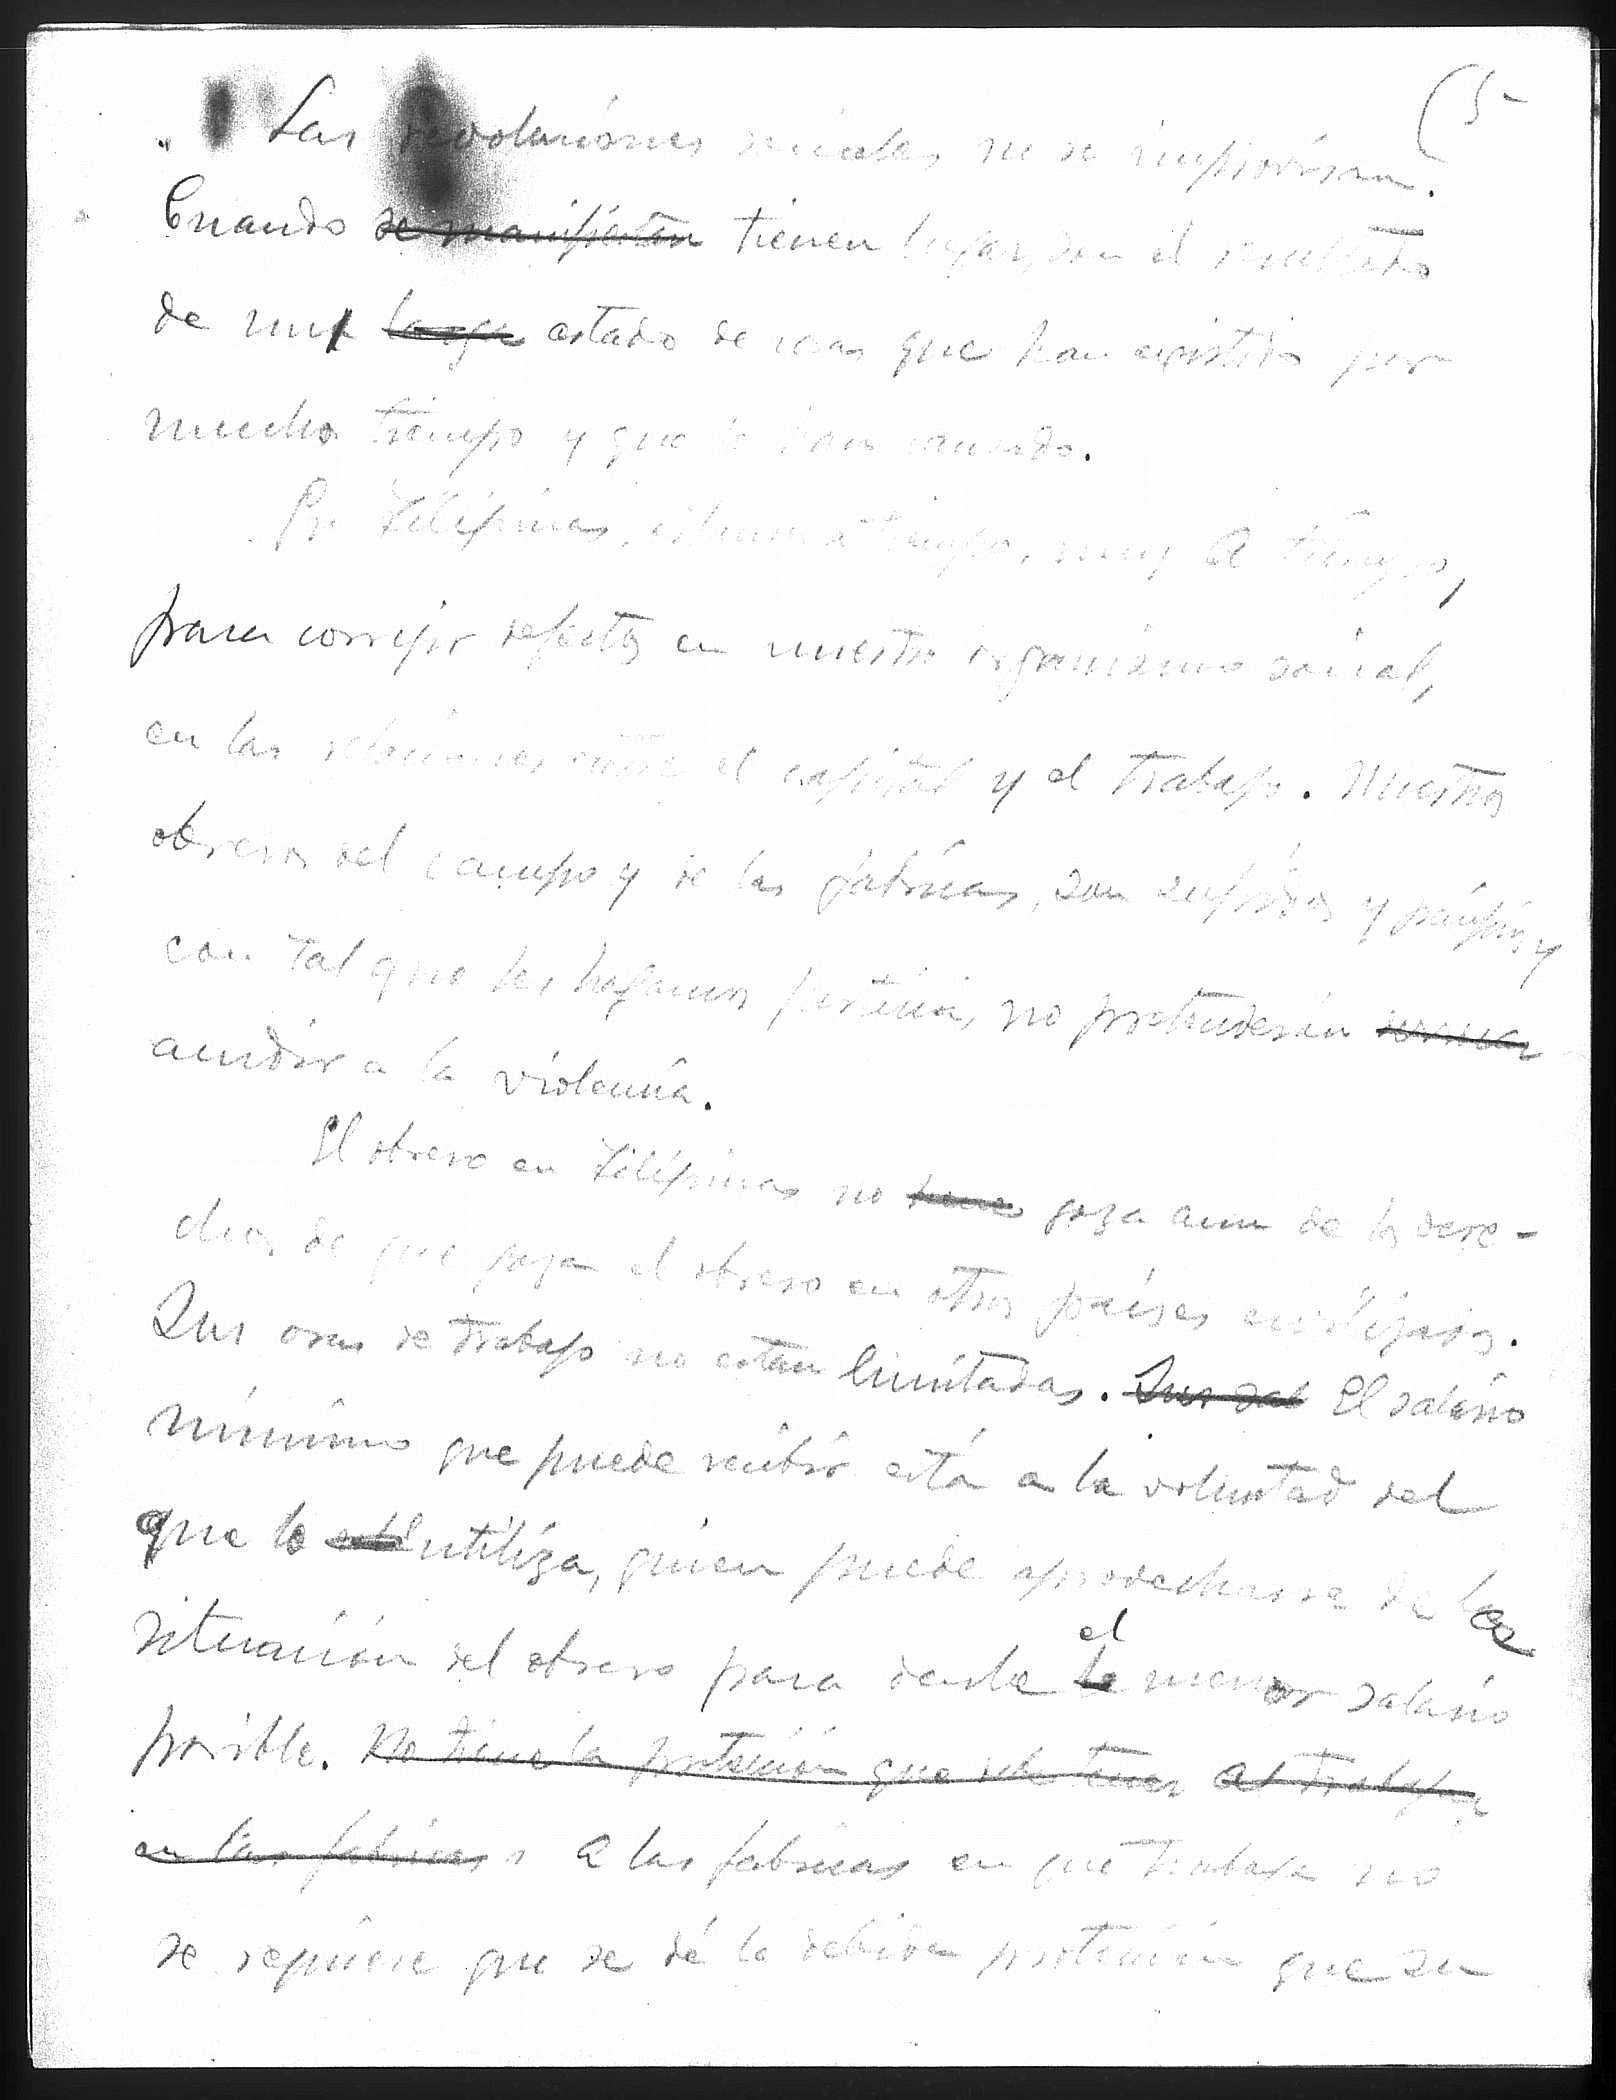 (5
Las revoluciones sociales no se improvisan.
Cuando se manifiestan tienen lugar, son el resultado
de un larga estado de cosas que han existido por
mucho tiempo y que la han causado.
En Filipinas, estamos a tiempo, muy a tiempo,
para corregir defectos en nuestro organismo social,
en las relaciones entre el capital y el trabajo. Nuestros
obreros del campo y de las fábricas, son sufridos y
con tal que les hagamos justicia, no pretenderán
acudir a la violencia.
El obrero en Filipinas no tiene goza aun de los dere-
chos de que goza el obrero en otros países civilizados.
Sus oras de trabajo no estan limitadas. Sus sal El salario
mínimo que puede recibir está a la voluntad del
que lo utiliza, quien puede aprovecharse de la
situación del obrero para darle el menor salario
posible. No tiene la protección que debe tener al trabajar
en las fabricas. A las fabricas en que trabaja no
se requiere que se dé la debida protección que su